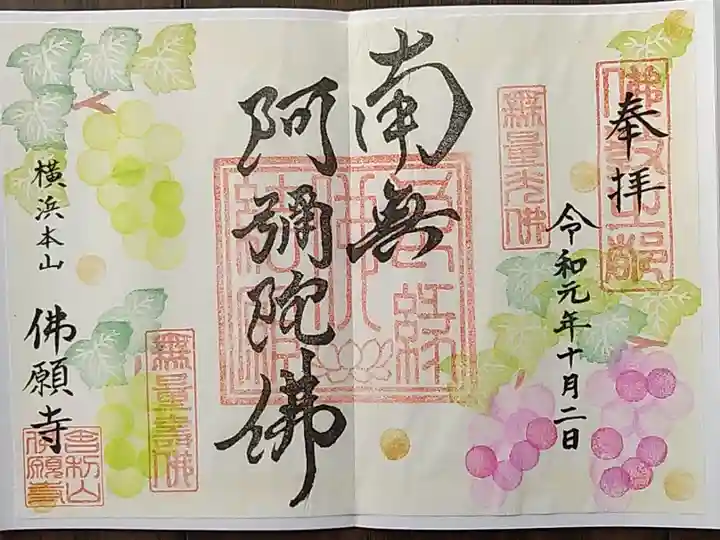 奉拝
令和元年十月二日
無量光佛
南無
阿彌陀佛
無量壽佛
横浜本山
佛願寺